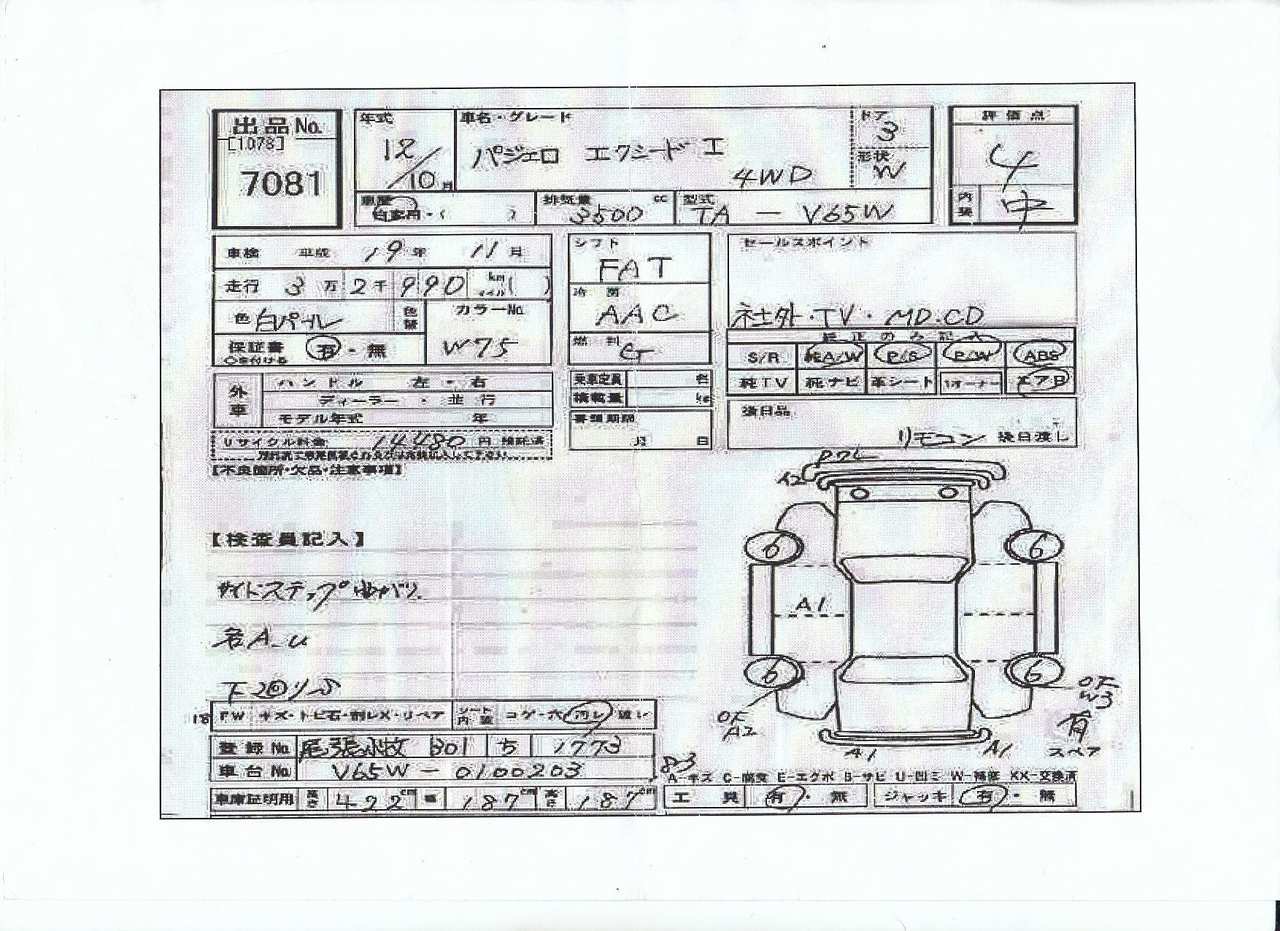 出品No.
[1078]
7081
年式
12/10月
車名・グレード
パジェロ エクシード I
4WD
ドア
3
形状
W
評価点
4
内装
中
車歴
自家用・( )
排気量 cc
3500
型式
TA - V65W
車検 平成 19年 11月
走行 3万2千990 km マイル( )
色 白パール
色替
カラーNo.
W75
保証書 有・無
シフト
FAT
冷房
AAC
燃料
G
セールスポイント
社外・TV・MD.CD
純正のみ記入
S/R 純A/W P/S P/W ABS
純TV 純ナビ 革シート 1オーナー エアB
外車
ハンドル 左・右
ディーラー・並行
モデル年式 年
乗車定員 名
積載量 kg
書類期限
月 日
後日品
リモコン 後日渡し
リサイクル料金 14480円 預託済
【不良箇所・欠品・注意事項】
【検査員記入】
サイドステップゆがり
各A.U
下回りS
FW キズ・トビ石・割レX・リペア
シート内装 コゲ・穴・汚レ・破レ
登録No. 尾張小牧 301 ち 1773
車台No. V65W-0100203
車庫証明用 長さ 422cm 幅 187cm 高さ 187cm
A2
6
6
A1
6
6
OF
A2
OF
W3
有
スペア
A1
A1
A-キズ C-腐食 E-エクボ S-サビ U-凹ミ W-補修 XX-交換済
工具 有・無
ジャッキ 有・無